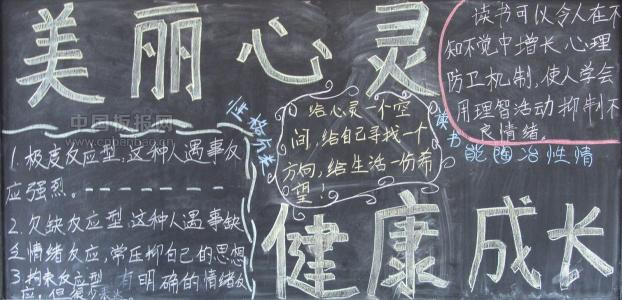 美丽心灵
读书可以令人在不
知不觉中增长心理
防卫机制,使人学会
用理智活动抑制不
良情绪.
读书
能陶冶性情
中国板报网
www.cnbanbao.cn
给心灵一个空
间,给自己寻找一个
方向,给生活一份希
望!
1.极度反应型,这种人遇事反
应强烈.
2.欠缺反应型,这种人遇事缺
乏情绪反应,常压抑自己的思想
3.拘束反应型 有明确的情绪反
应,但很少表达
健康成长